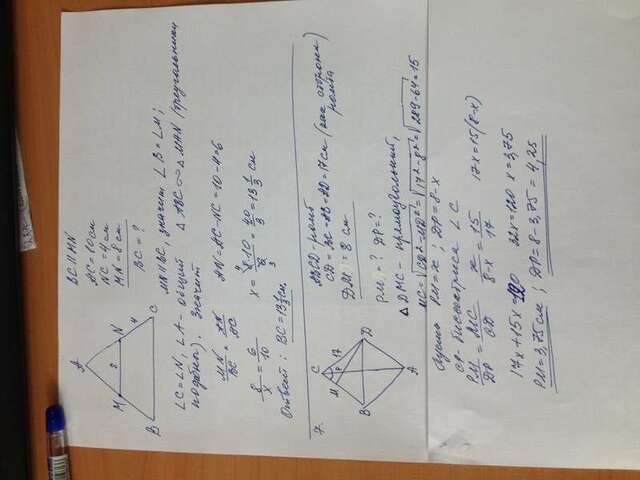 BC||MN
AC=10см
NC=4см
MN=8см
BC=?
A
M
8
N
4
B
C
MN||BC, значит ∠B=∠M;
∠C=∠N, ∠A-общий △ABC∾△MAN (треугольники
подобны). Значит
MN/BC=AN/AC AN=AC-NC=10-4=6
8/x=6/10 x=8·10/6=40/3=13 1/3 см
Ответ: BC=13 1/3 см
7.
C
M
P
17
D
B
A
ABCD-ромб
CD=BC=AB=AD=17см (как стороны
ромба
DM=8 см
PM-? DP=?
△DMC-прямоугольный,
MC=√CD²-MD²=√17²-8²=√289-64=15
Пусть PM=x; DP=8-x
CP-биссектриса ∠C
PM/DP=MC/CD x/8-x=15/17 17x=15(8-x)
17x+15x=120 32x=120 x=3,75
PM=3,75см; DP=8-3,75=4,25